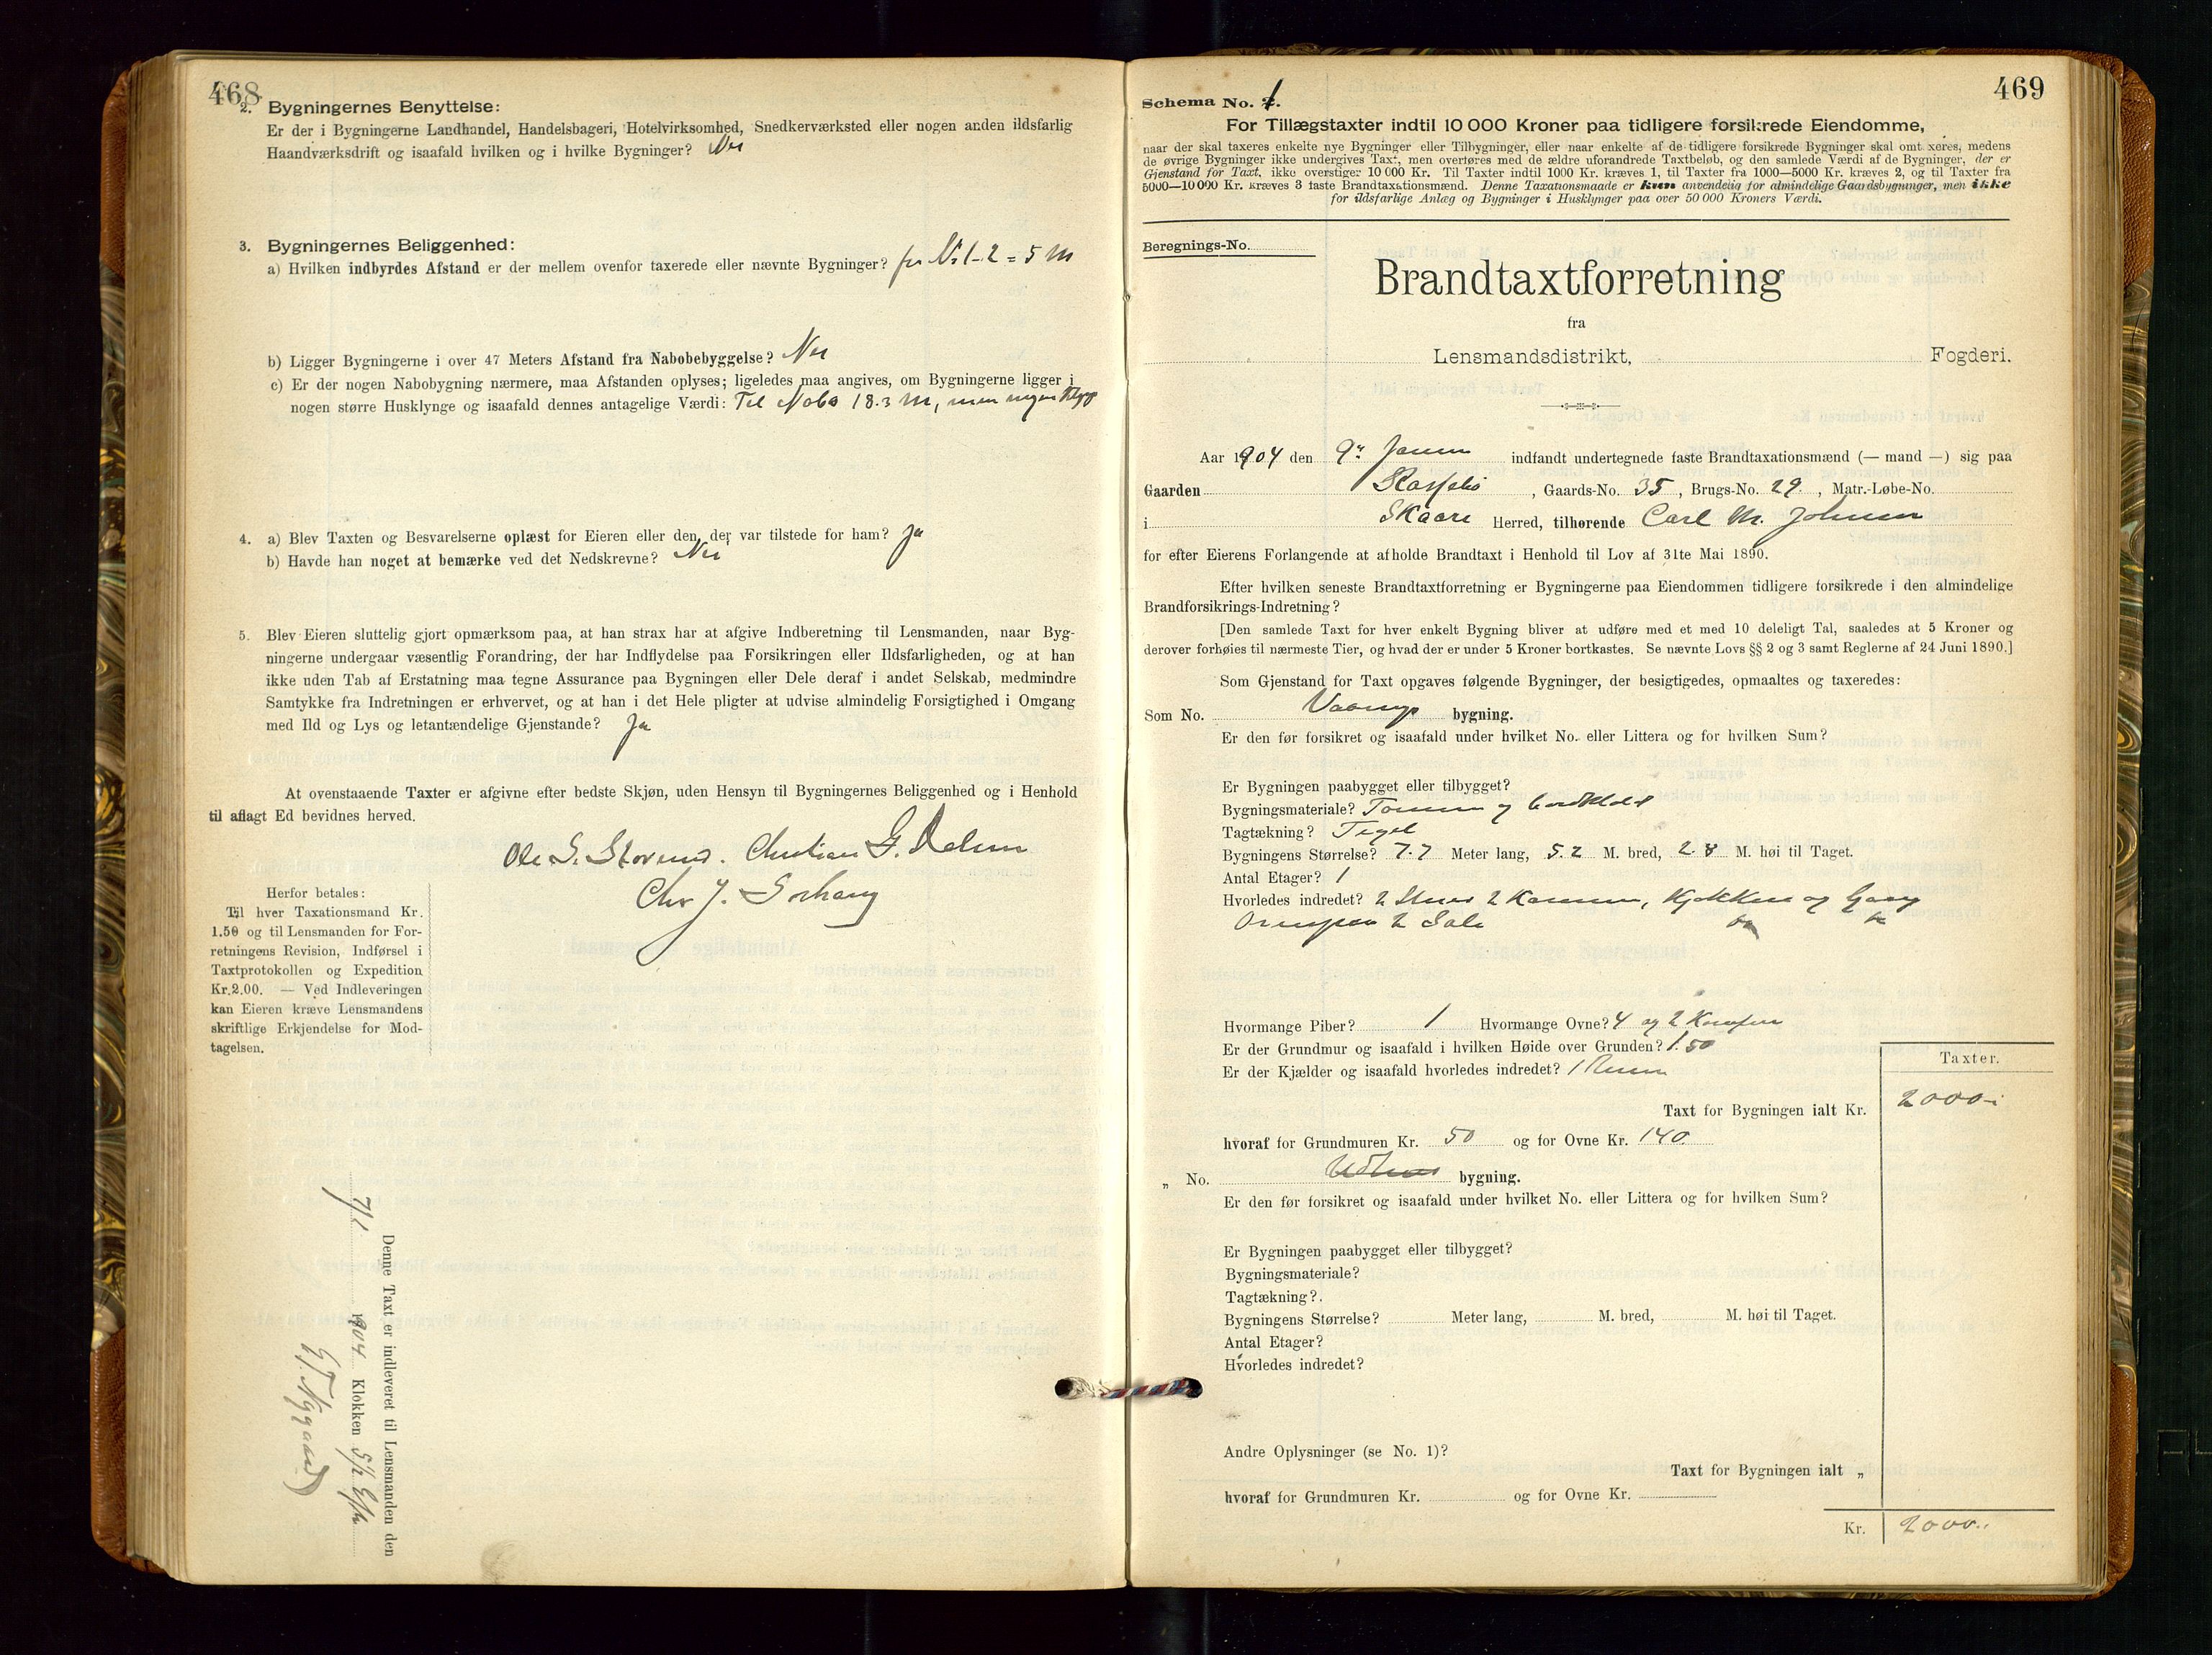 468
2. Bygningernes Benyttelse:
Er der i Bygningerne Landhandel, Handelsbageri, Hotelvirksomhed, Snedkerværksted eller nogen anden ildsfarlig
Haandværksdrift og isaafald hvilken og i hvilke Bygninger? Nei
3. Bygningernes Beliggenhed:
a) Hvilken indbyrdes Afstand er der mellem ovenfor taxerede eller nævnte Bygninger? fra No 1-2 = 5 M
b) Ligger Bygningerne i over 47 Meters Afstand fra Nabobebyggelse? Nei
c) Er der nogen Nabobygning nærmere, maa Afstanden oplyses; ligeledes maa angives, om Bygningerne ligger i
nogen større Husklynge og isaafald dennes antagelige Værdi: Til Nabo 18.3 M, men ingen
4. a) Blev Taxten og Besvarelserne oplæst for Eieren eller den, der var tilstede for ham? Ja
b) Havde han noget at bemærke ved det Nedskrevne? Nei
5. Blev Eieren sluttelig gjort opmærksom paa, at han strax har at afgive Indberetning til Lensmanden, naar Byg-
ningerne undergaar væsentlig Forandring, der har Indflydelse paa Forsikringen eller Ildsfarligheden, og at han
ikke uden Tab af Erstatning maa tegne Assurance paa Bygningen eller Dele deraf i andet Selskab, medmindre
Samtykke fra Indretningen er erhvervet, og at han i det Hele pligter at udvise almindelig Forsigtighed i Omgang
med Ild og Lys og letantændelige Gjenstande? Ja
At ovenstaaende Taxter er afgivne efter bedste Skjøn, uden Hensyn til Bygningernes Beliggenhed og i Henhold
til aflagt Ed bevidnes herved.
Ole S. Christian G.
Chr J.
Herfor betales:
Til hver Taxationsmand Kr.
1.50 og til Lensmanden for For-
retningens Revision, Indførsel i
Taxtprotokollen og Expedition
Kr. 2.00. — Ved Indleveringen
kan Eieren kræve Lensmandens
skriftlige Erkjendelse for Mod-
tagelsen.
Denne Taxt er indleveret til Lensmanden den
7/1 1904 Klokken 5½ Efth
Nygaard
469
Schema No. 1.
For Tillægstaxter indtil 10 000 Kroner paa tidligere forsikrede Eiendomme,
naar der skal taxeres enkelte nye Bygninger eller Tilbygninger, eller naar enkelte af de tidligere forsikrede Bygninger skal omtaxeres, medens
de øvrige Bygninger ikke undergives Taxt, men overføres med de ældre uforandrede Taxtbeløb, og den samlede Værdi af de Bygninger, der er
Gjenstand for Taxt, ikke overstiger 10 000 Kr. Til Taxter indtil 1000 Kr. kræves 1, til Taxter fra 1000—5000 Kr. kræves 2, og til Taxter fra
5000—10 000 Kr. kræves 3 faste Brandtaxationsmænd. Denne Taxationsmaade er kun anvendelig for almindelige Gaardsbygninger, men ikke
for ildsfarlige Anlæg og Bygninger i Husklynger paa over 50 000 Kroners Værdi.
Beregnings-No.
Brandtaxtforretning
fra
Lensmandsdistrikt, Fogderi.
Aar 1904 den 9de indfandt undertegnede faste Brandtaxationsmænd (— mand —) sig paa
Gaarden , Gaards-No. 35, Brugs-No. 29., Matr.-Løbe-No.
i Skaare Herred, tilhørende Carl M. Johnsen
for efter Eierens Forlangende at afholde Brandtaxt i Henhold til Lov af 31te Mai 1890.
Efter hvilken seneste Brandtaxtforretning er Bygningerne paa Eiendommen tidligere forsikrede i den almindelige
Brandforsikrings-Indretning?
[Den samlede Taxt for hver enkelt Bygning bliver at udføre med et med 10 deleligt Tal, saaledes at 5 Kroner og
derover forhøies til nærmeste Tier, og hvad der er under 5 Kroner bortkastes. Se nævnte Lovs §§ 2 og 3 samt Reglerne af 24 Juni 1890.]
Som Gjenstand for Taxt opgaves følgende Bygninger, der besigtigedes, opmaaltes og taxeredes:
Som No. Vaanings bygning.
Er den før forsikret og isaafald under hvilket No. eller Littera og for hvilken Sum?
Er Bygningen paabygget eller tilbygget?
Bygningsmateriale? Tømmer og bordklædt
Tagtækning? Tegel
Bygningens Størrelse? 7.7 Meter lang, 5.2 M. bred, 2.8 M. høi til Taget.
Antal Etager? 1
Hvorledes indredet? 2 Stuer 2 Kammer, Kjøkken og Gang
Ovenpaa 2 Sale
Hvormange Piber? 1 Hvormange Ovne? 4 og 2 Komfur
Er der Grundmur og isaafald i hvilken Høide over Grunden? 1.50
Er der Kjælder og isaafald hvorledes indredet? 1 Rum
Taxter.
Taxt for Bygningen ialt Kr. 2000.-
hvoraf for Grundmuren Kr. 50 og for Ovne Kr. 140
„ No. Udhus bygning.
Er den før forsikret og isaafald under hvilket No. eller Littera og for hvilken Sum?
Er Bygningen paabygget eller tilbygget?
Bygningsmateriale?
Tagtækning?
Bygningens Størrelse? Meter lang, M. bred, M. høi til Taget.
Antal Etager?
Hvorledes indredet?
Andre Oplysninger (se No. 1)?
Taxt for Bygningen ialt „
hvoraf for Grundmuren Kr. og for Ovne Kr.
Kr. 2000..